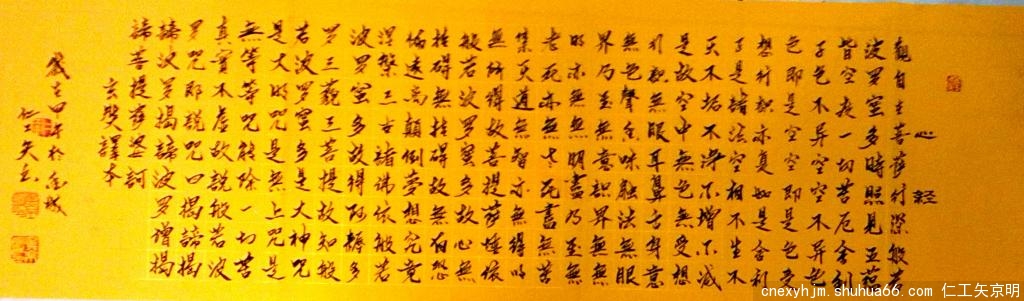 心经
觀自在菩薩行深般若
波罗蜜多時照見五蕴
皆空度一切苦厄舍利
子色不异空空不异色
色即是空空即是色受
想行識亦复如是舍利
子是諸法空相不生不
灭不垢不净不增不减
是故空中無色無受想
行識無眼耳鼻舌身意
無色聲香味触法無眼
界乃至無意識界無無
明亦無無明盡乃至無
老死亦無老死盡無苦
集灭道無智亦無得以
無所得故菩提萨埵依
般若波罗蜜多故心無
挂碍無挂碍故無有恐
怖遠离顛倒夢想究竟
涅槃三世諸佛依般若
波罗蜜多故得阿耨多
罗三藐三菩提故知般
若波罗蜜多是大神咒
是大明咒是無上咒是
無等等咒能除一切苦
真實不虚故説般若波
罗咒即説咒曰揭諦揭
諦波罗揭諦波罗僧揭
諦菩提萨婆訶
玄奘譯本
歲在甲午於金城
仁工矢书
cnexyhjm.shuhua66.com 仁工矢京明